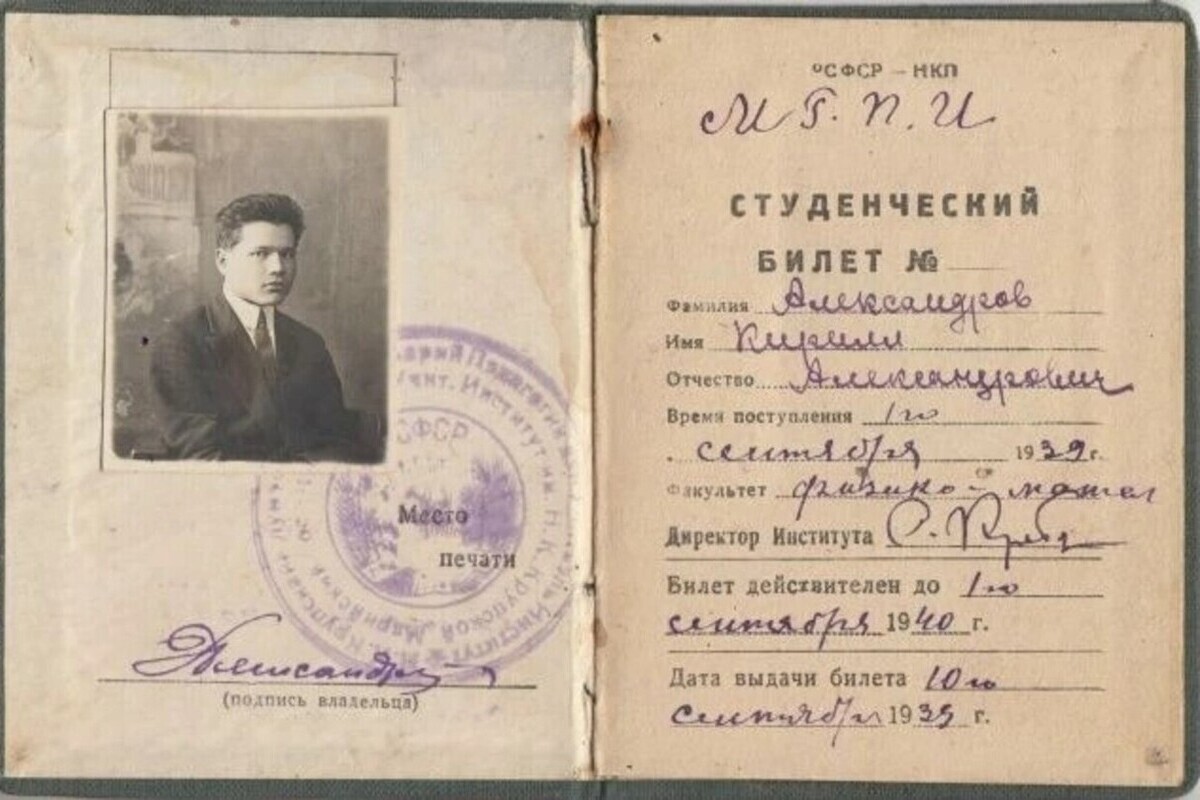 СФСР
Место
печати
Александров
(подпись владельца)
РСФСР — НКП
М Г. П. И
СТУДЕНЧЕСКИЙ
БИЛЕТ №
Фамилия Александров
Имя Кирилл
Отчество Александрович
Время поступления 1го
сентября 1939 г.
Факультет физико-матем
Директор Института
Билет действителен до 1го
сентября 1940 г.
Дата выдачи билета 10го
сентября 1939 г.